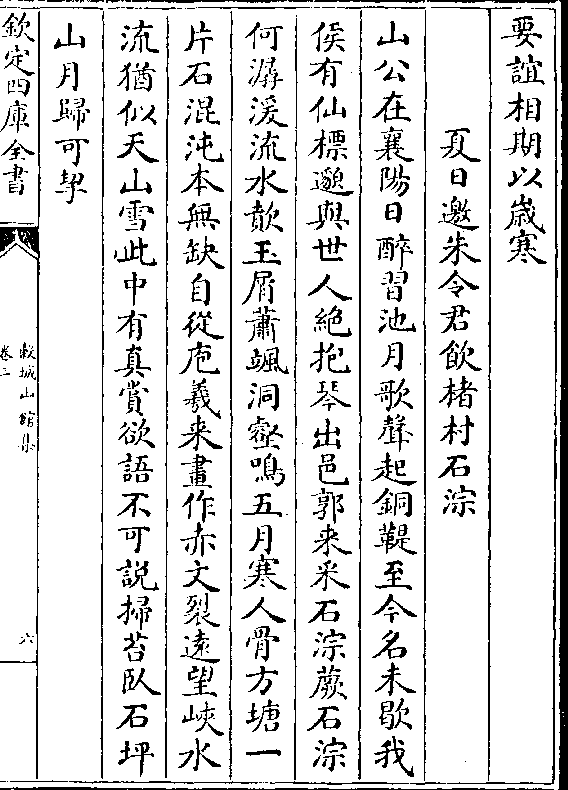 要誼相期以嵗寒
夏日邀朱令君飲楮村石淙
山公在襄陽日醉習池月歌聲起銅鞮至今名未歇我
侯有仙標邈與世人絶抱琴出邑郭来采石淙蕨石淙
何潺湲流水欹玉屑蕭颯洞壑鳴五月寒人骨方塘一
片石混沌本無缺自從庖羲来畫作赤文裂遠望峽水
流猶似天山雪此中有真賞欲語不可説掃苔臥石坪
山月歸可挈
欽定四庫全書
穀城山館集
卷二
六